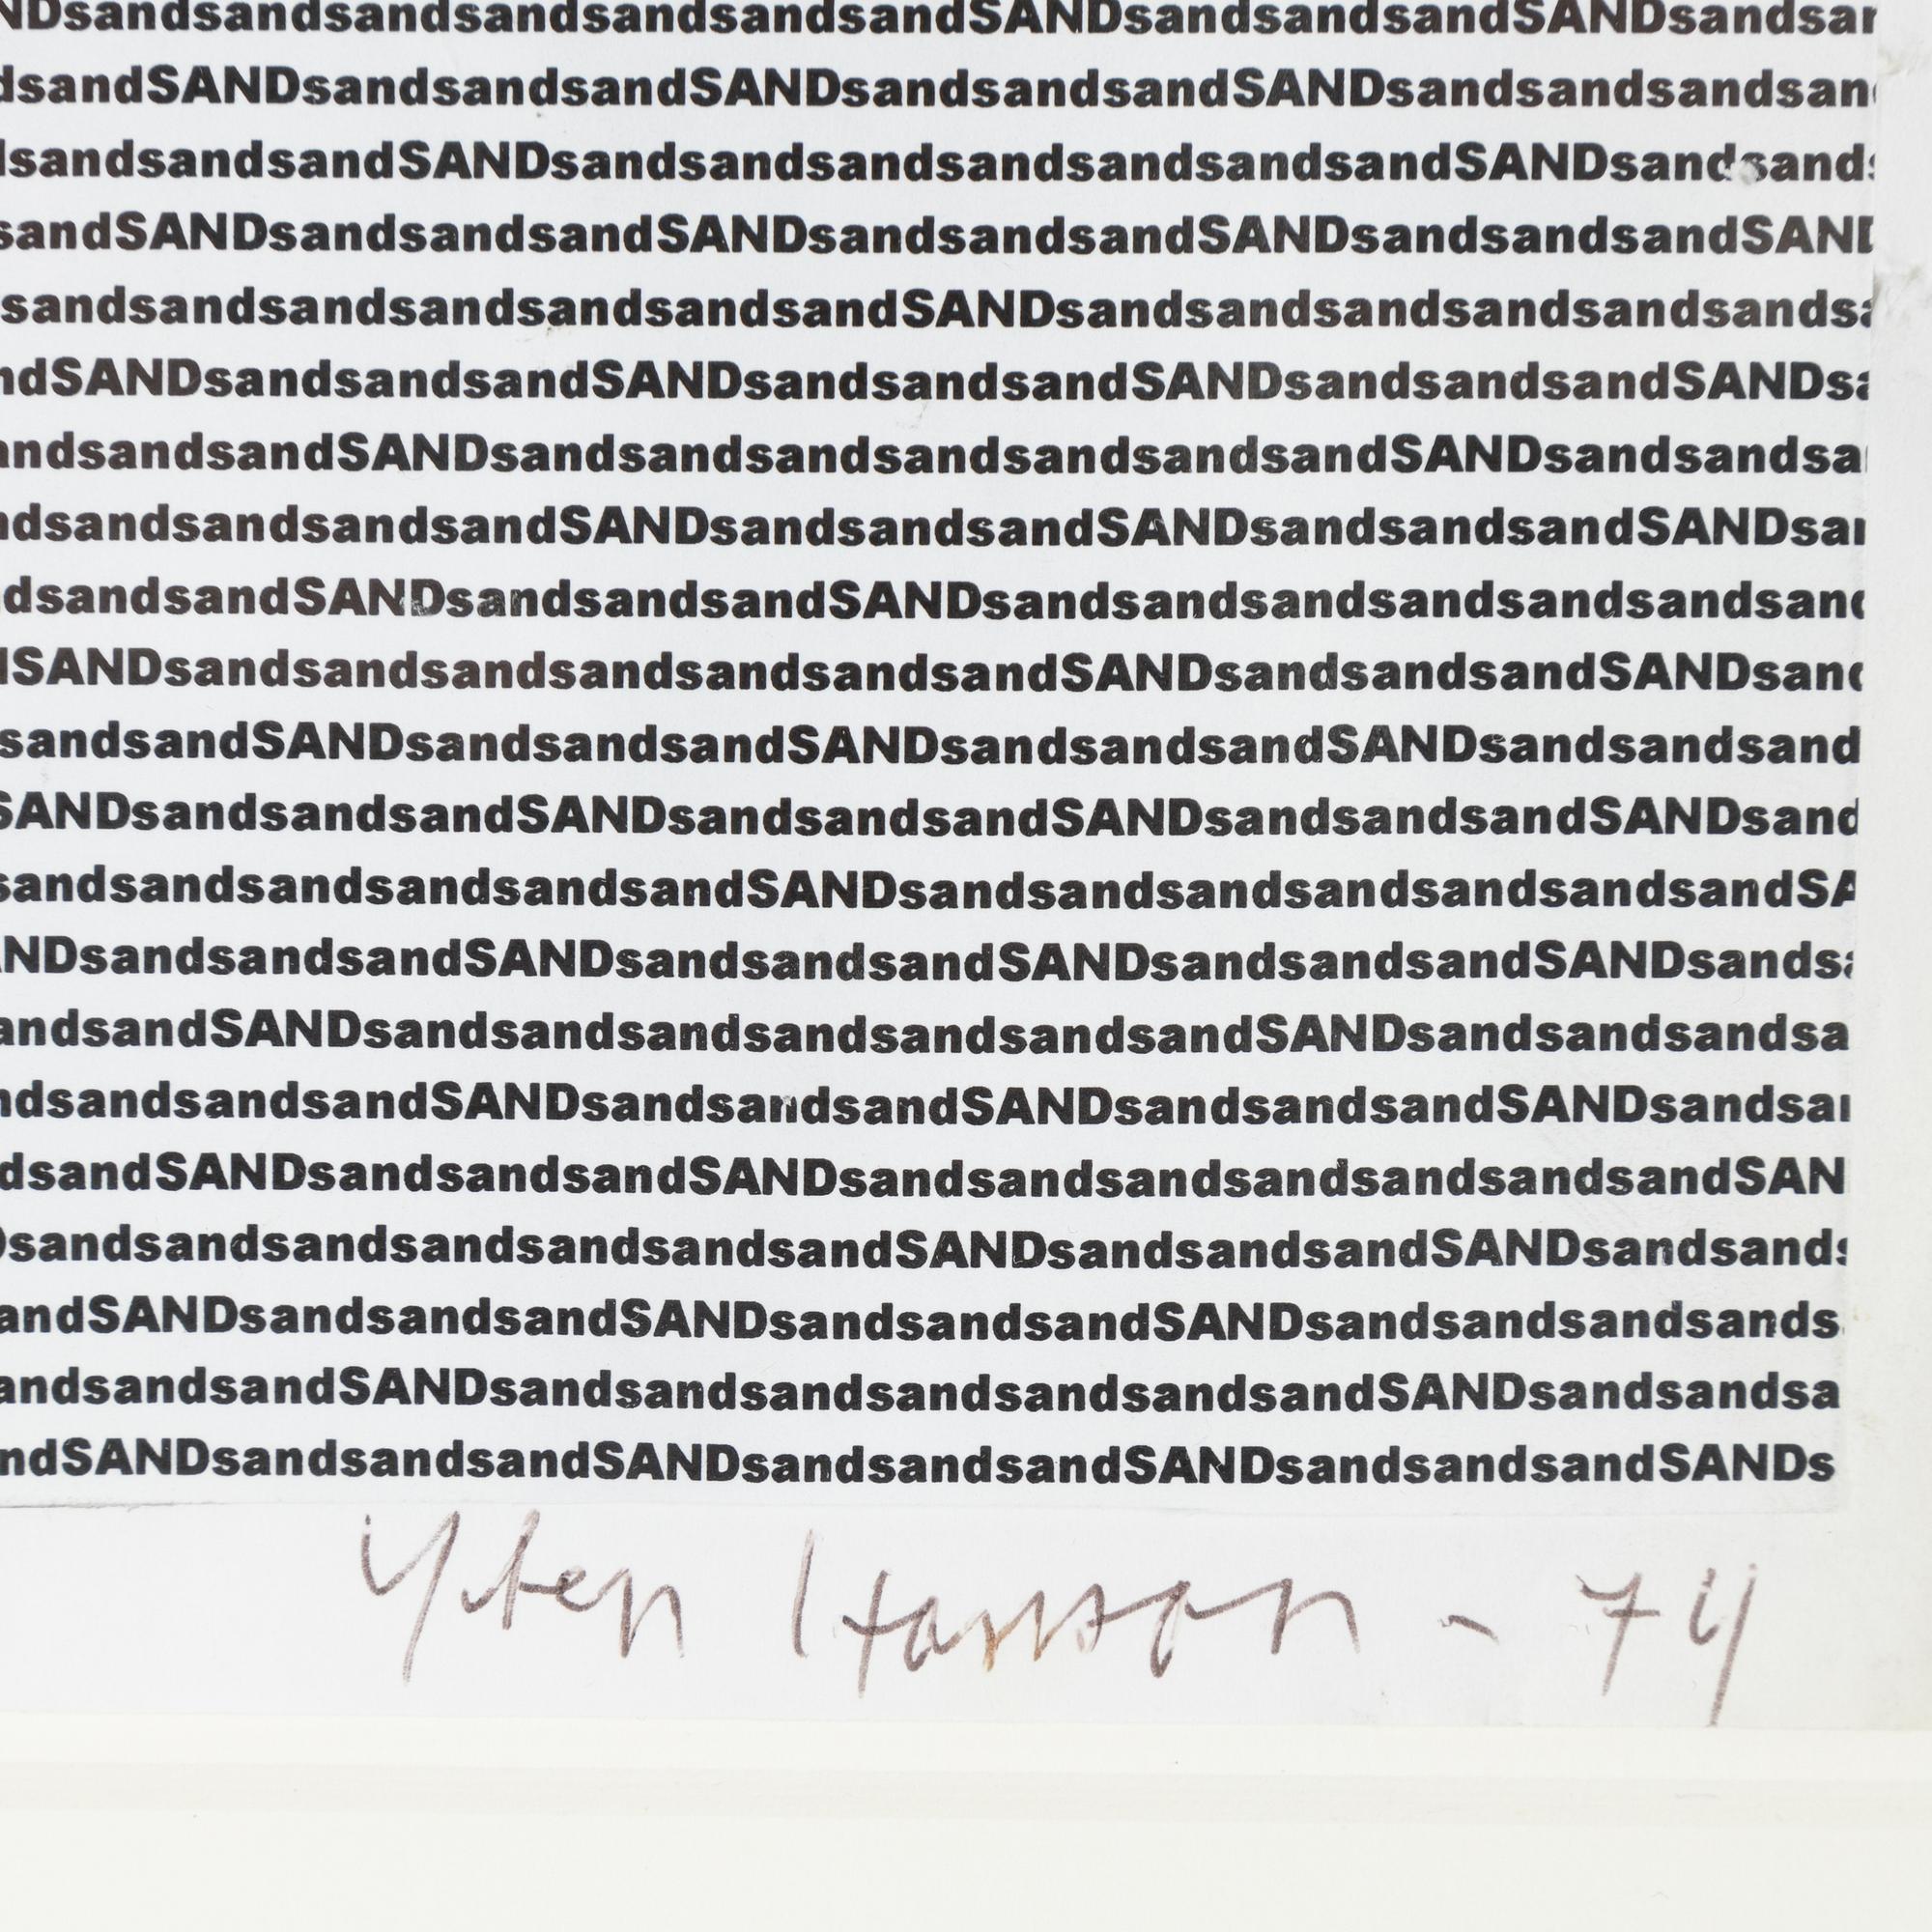 NDsandsandsandsandsandsandsandSANDsandsandsandSANDsandsan
dsandSANDsandsandsandSANDsandsandsandSANDsandsandsandsan
dsandsandsandSANDsandsandsandsandsandsandsandSANDsandsands
sandSANDsandsandsandSANDsandsandsandSANDsandsandsandSAND
sandsandsandsandsandsandsandSANDsandsandsandsandsandsandsa
ndSANDsandsandsandSANDsandsandsandSANDsandsandsandSANDsa
andsandsandSANDsandsandsandsandsandsandsandSANDsandsandsa
ndsandsandsandsandSANDsandsandsandSANDsandsandsandSANDsan
dsandsandSANDsandsandsandSANDsandsandsandsandsandsandsand
dSANDsandsandsandsandsandsandsandSANDsandsandsandSANDsand
sandsandSANDsandsandsandSANDsandsandsandSANDsandsandsand
SANDsandsandsandSANDsandsandsandSANDsandsandsandSANDsand
sandsandsandsandsandsandSANDsandsandsandsandsandsandsandSA
ANDsandsandsandSANDsandsandsandSANDsandsandsandSANDsandsa
andsandSANDsandsandsandsandsandsandsandSANDsandsandsandsa
ndsandsandsandSANDsandsandsandSANDsandsandsandSANDsandsan
dsandSANDsandsandsandSANDsandsandsandsandsandsandsandSAN
DsandsandsandsandsandsandsandSANDsandsandsandSANDsandsands
andSANDsandsandsandSANDsandsandsandSANDsandsandsandsands
andsandsandSANDsandsandsandsandsandsandsandSANDsandsandsa
ndSANDsandsandsandSANDsandsandsandSANDsandsandsandSANDs
Sten Hanson - 74